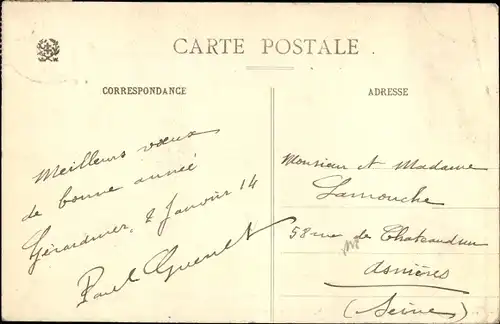 CARTE POSTALE
CORRESPONDANCE
Meilleurs vœux
de bonne année
Gérardmer, 2 Janvier 14
Paul
ADRESSE
Monsieur et Madame
Lamouche
58 rue de Chateaudun
Asnières
(Seine)